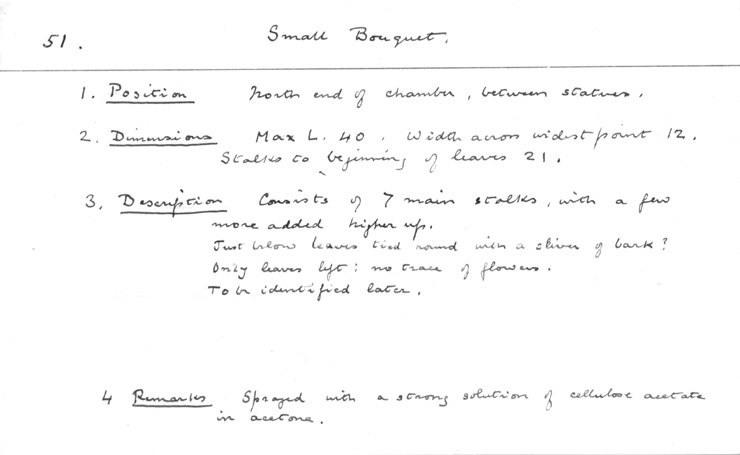 51. Small Bouquet.
1. Position North end of chamber, between statues.
2. Dimensions Max L. 40. Width across widest point 12.
Stalks to beginning of leaves 21.
3. Description Consists of 7 main stalks, with a few
more added higher up.
Just below leaves tied round with a sliver of bark?
Only leaves left; no trace of flowers.
To be identified later.
4 Remarks Sprayed with a strong solution of cellulose acetate
in acetone.